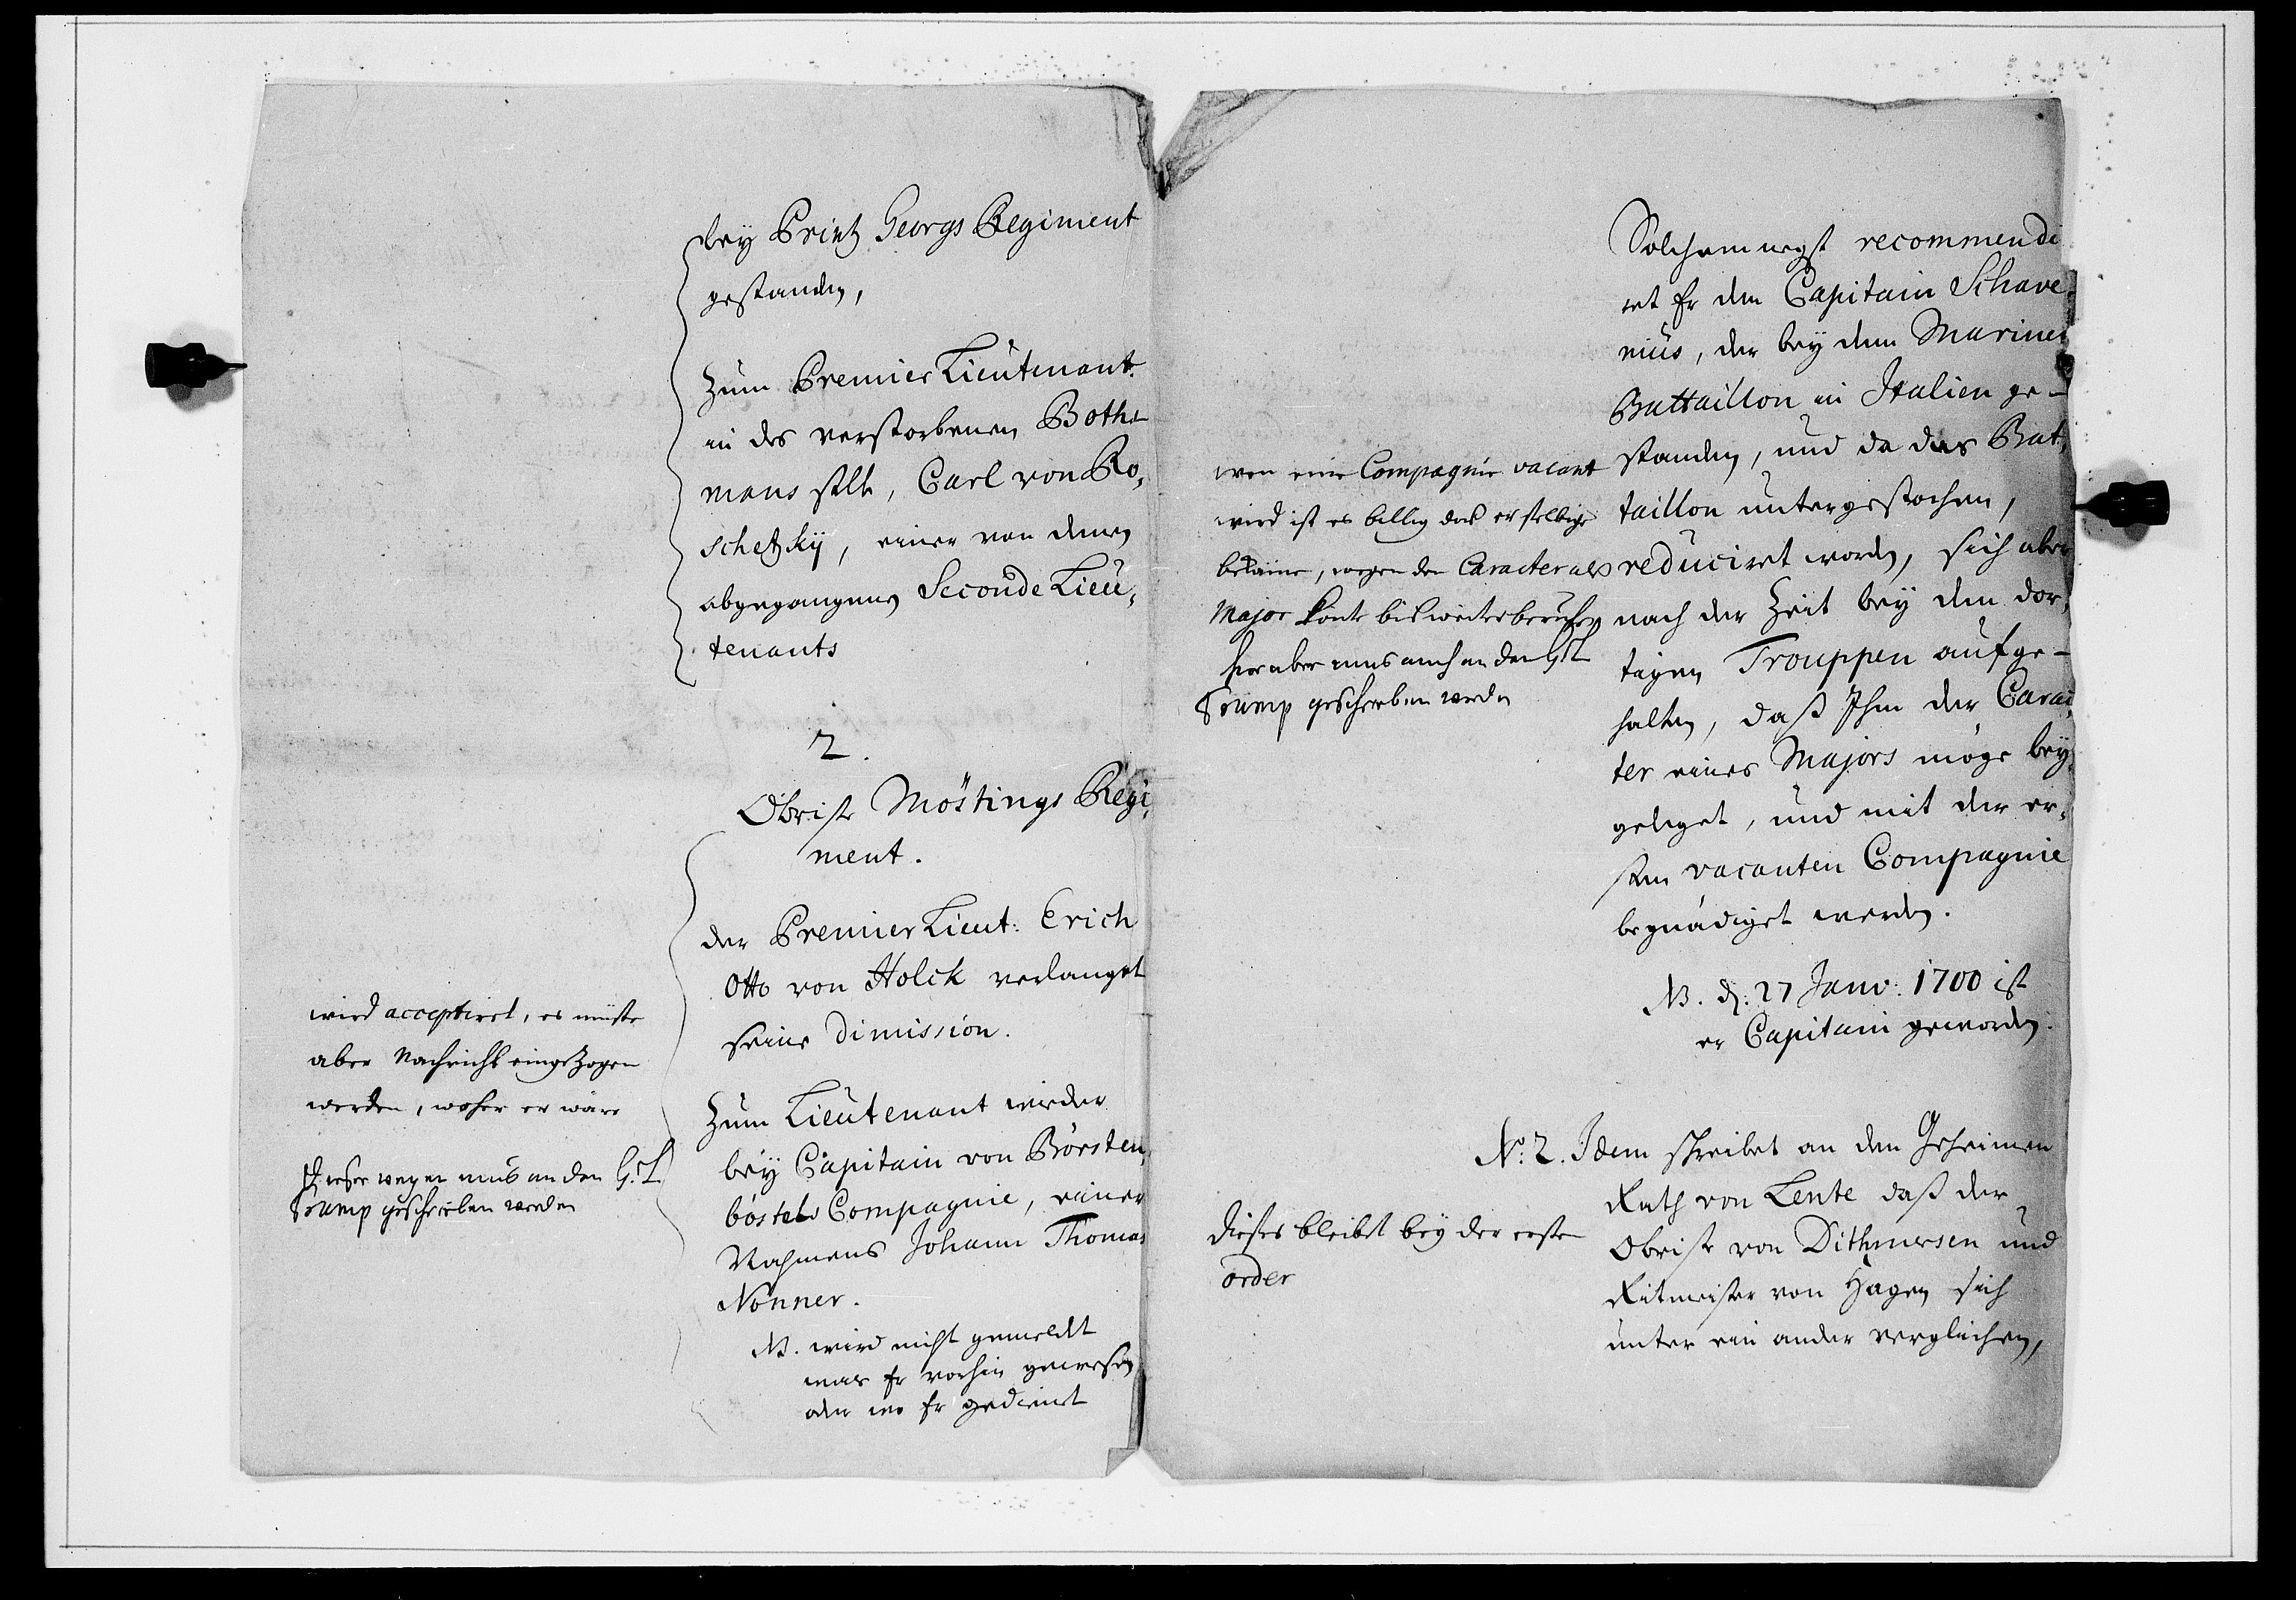 bey Printz Georgs Regiment
gestanden,
Zum Premier Lieutenant
in des verstorbenen Both-
mans stelle, Carl von Ro,
schetzky, einer von denen
abgegangenen Seconde Lieu,
tenants
2.
Obriste Möstings Regi,
ment.
der Premier Lieut: Erich
Otto von Holck verlanget
seine Dimission.
Zum Lieutenant wieder
bey Capitain von Börsten,
böstels Compagnie, einer
Nahmens Johann Thomas
Nönner.
NB. wird nicht gemeldet
was Er vorhin gewesen
oder wo Er gedienet
wird acceptiret, es müste
aber Nachricht eingezogen
werden, woher er wäre
dieser wegen mus an den G. L.
Trump geschrieben werden
Solchemnegst recommendi
ret Er den Capitain Schave
nius, der bey dem Marine
Battaillon in Italien ge-
standen, und da das Bat,
taillon untergestochen,
reduciret worden, sich aber
nach der Zeit bey den dor,
tigen Trouppen aufge-
halten, daß Ihm der Carac,
ter eines Majors möge bey
geleget, und mit der er,
sten vacanten Compagnie
begnädiget werden.
NB. d: 27 Janv: 1700 ist
er Capitain geworden.
wen eine Compagnie vacant
wird ist es billig das er selbige
bekäme, wegen den Caracter als
Major könte bis weiter beruhen
hier aber mus auch an den G. L.
Trump geschrieben werden
No: 2. Idem schreibet an den Geheimen
Rath von Lente daß der
Obriste von Dithmersen und
Ritmeister von Hagen sich
unter ein ander verglichen,
dieses bleibet bey der ersten
order